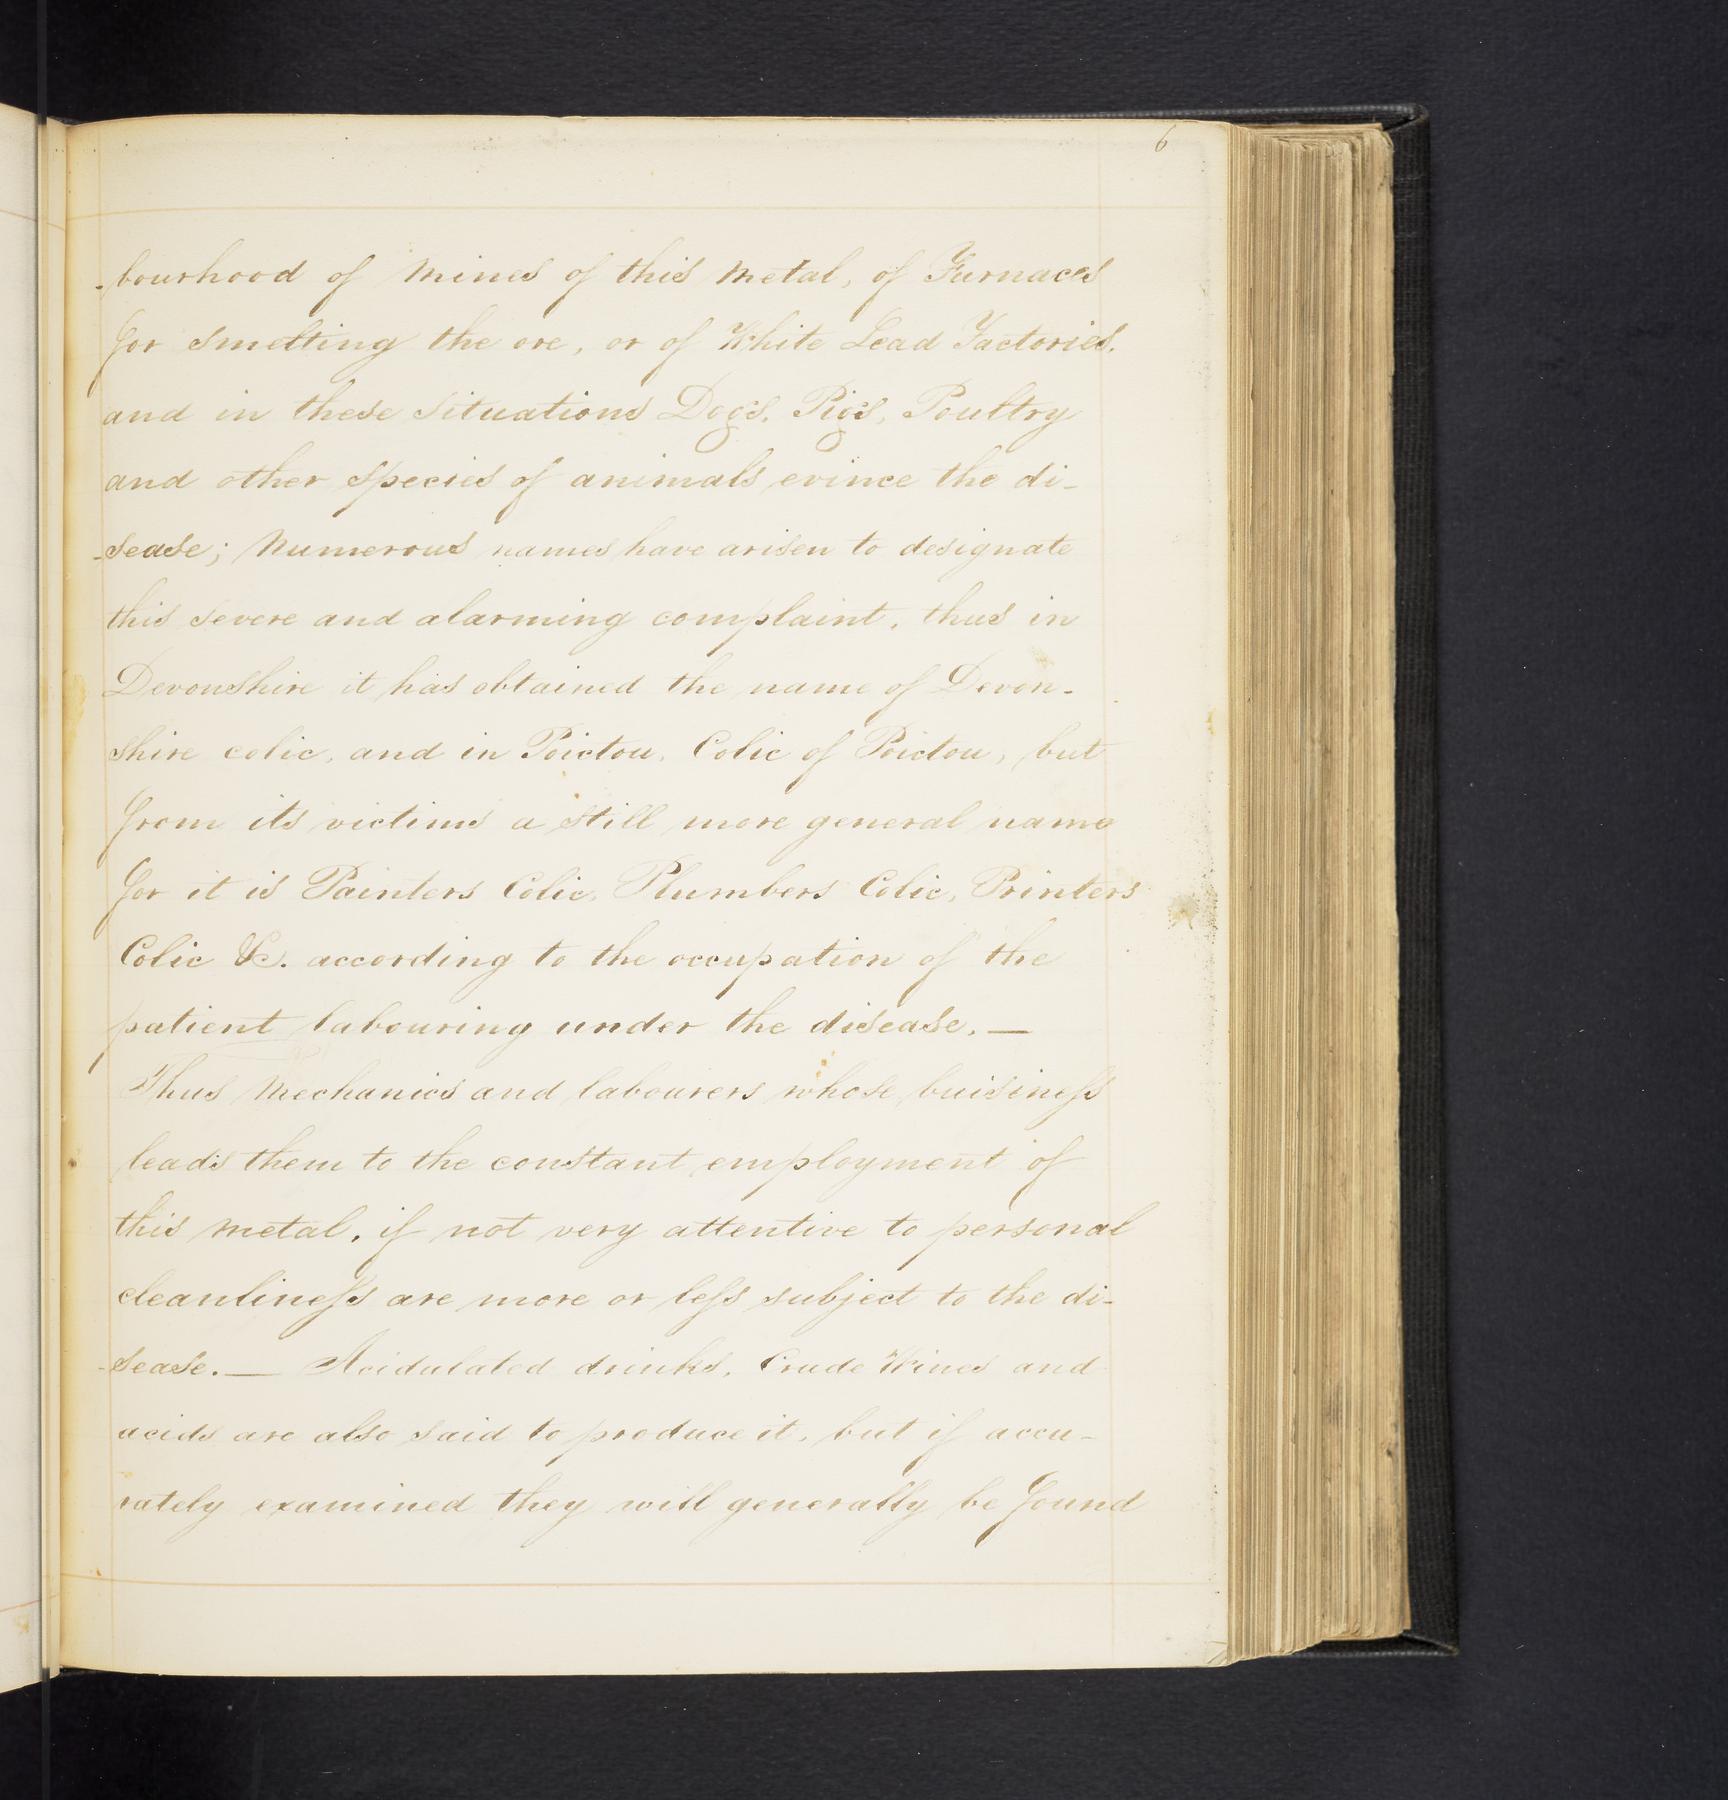 6
-bourhood of mines of this metal, of Furnaces
for smelting the ore, or of White Lead Factories.
and in these situations Dogs, Pigs, Poultry
and other species of animals evince the di-
-sease; Numerous names have arisen to designate
this severe and alarming complaint, thus in
Devonshire it has obtained the name of Devon-
shire colic, and in Poictou, Colic of Poictou, but
from its victims a still more general name
for it is Painters Colic, Plumbers Colic, Printers
Colic &c. according to the occupation of the
patient labouring under the disease. —
Thus Mechanics and labourers whose buisineſs
leads them to the constant employment of
this metal, if not very attentive to personal
cleanlineſs are more or leſs subject to the di-
-sease. — Acidulated drinks, Crude Wines and
acids are also said to produce it, but if accu-
rately examined they will generally be found